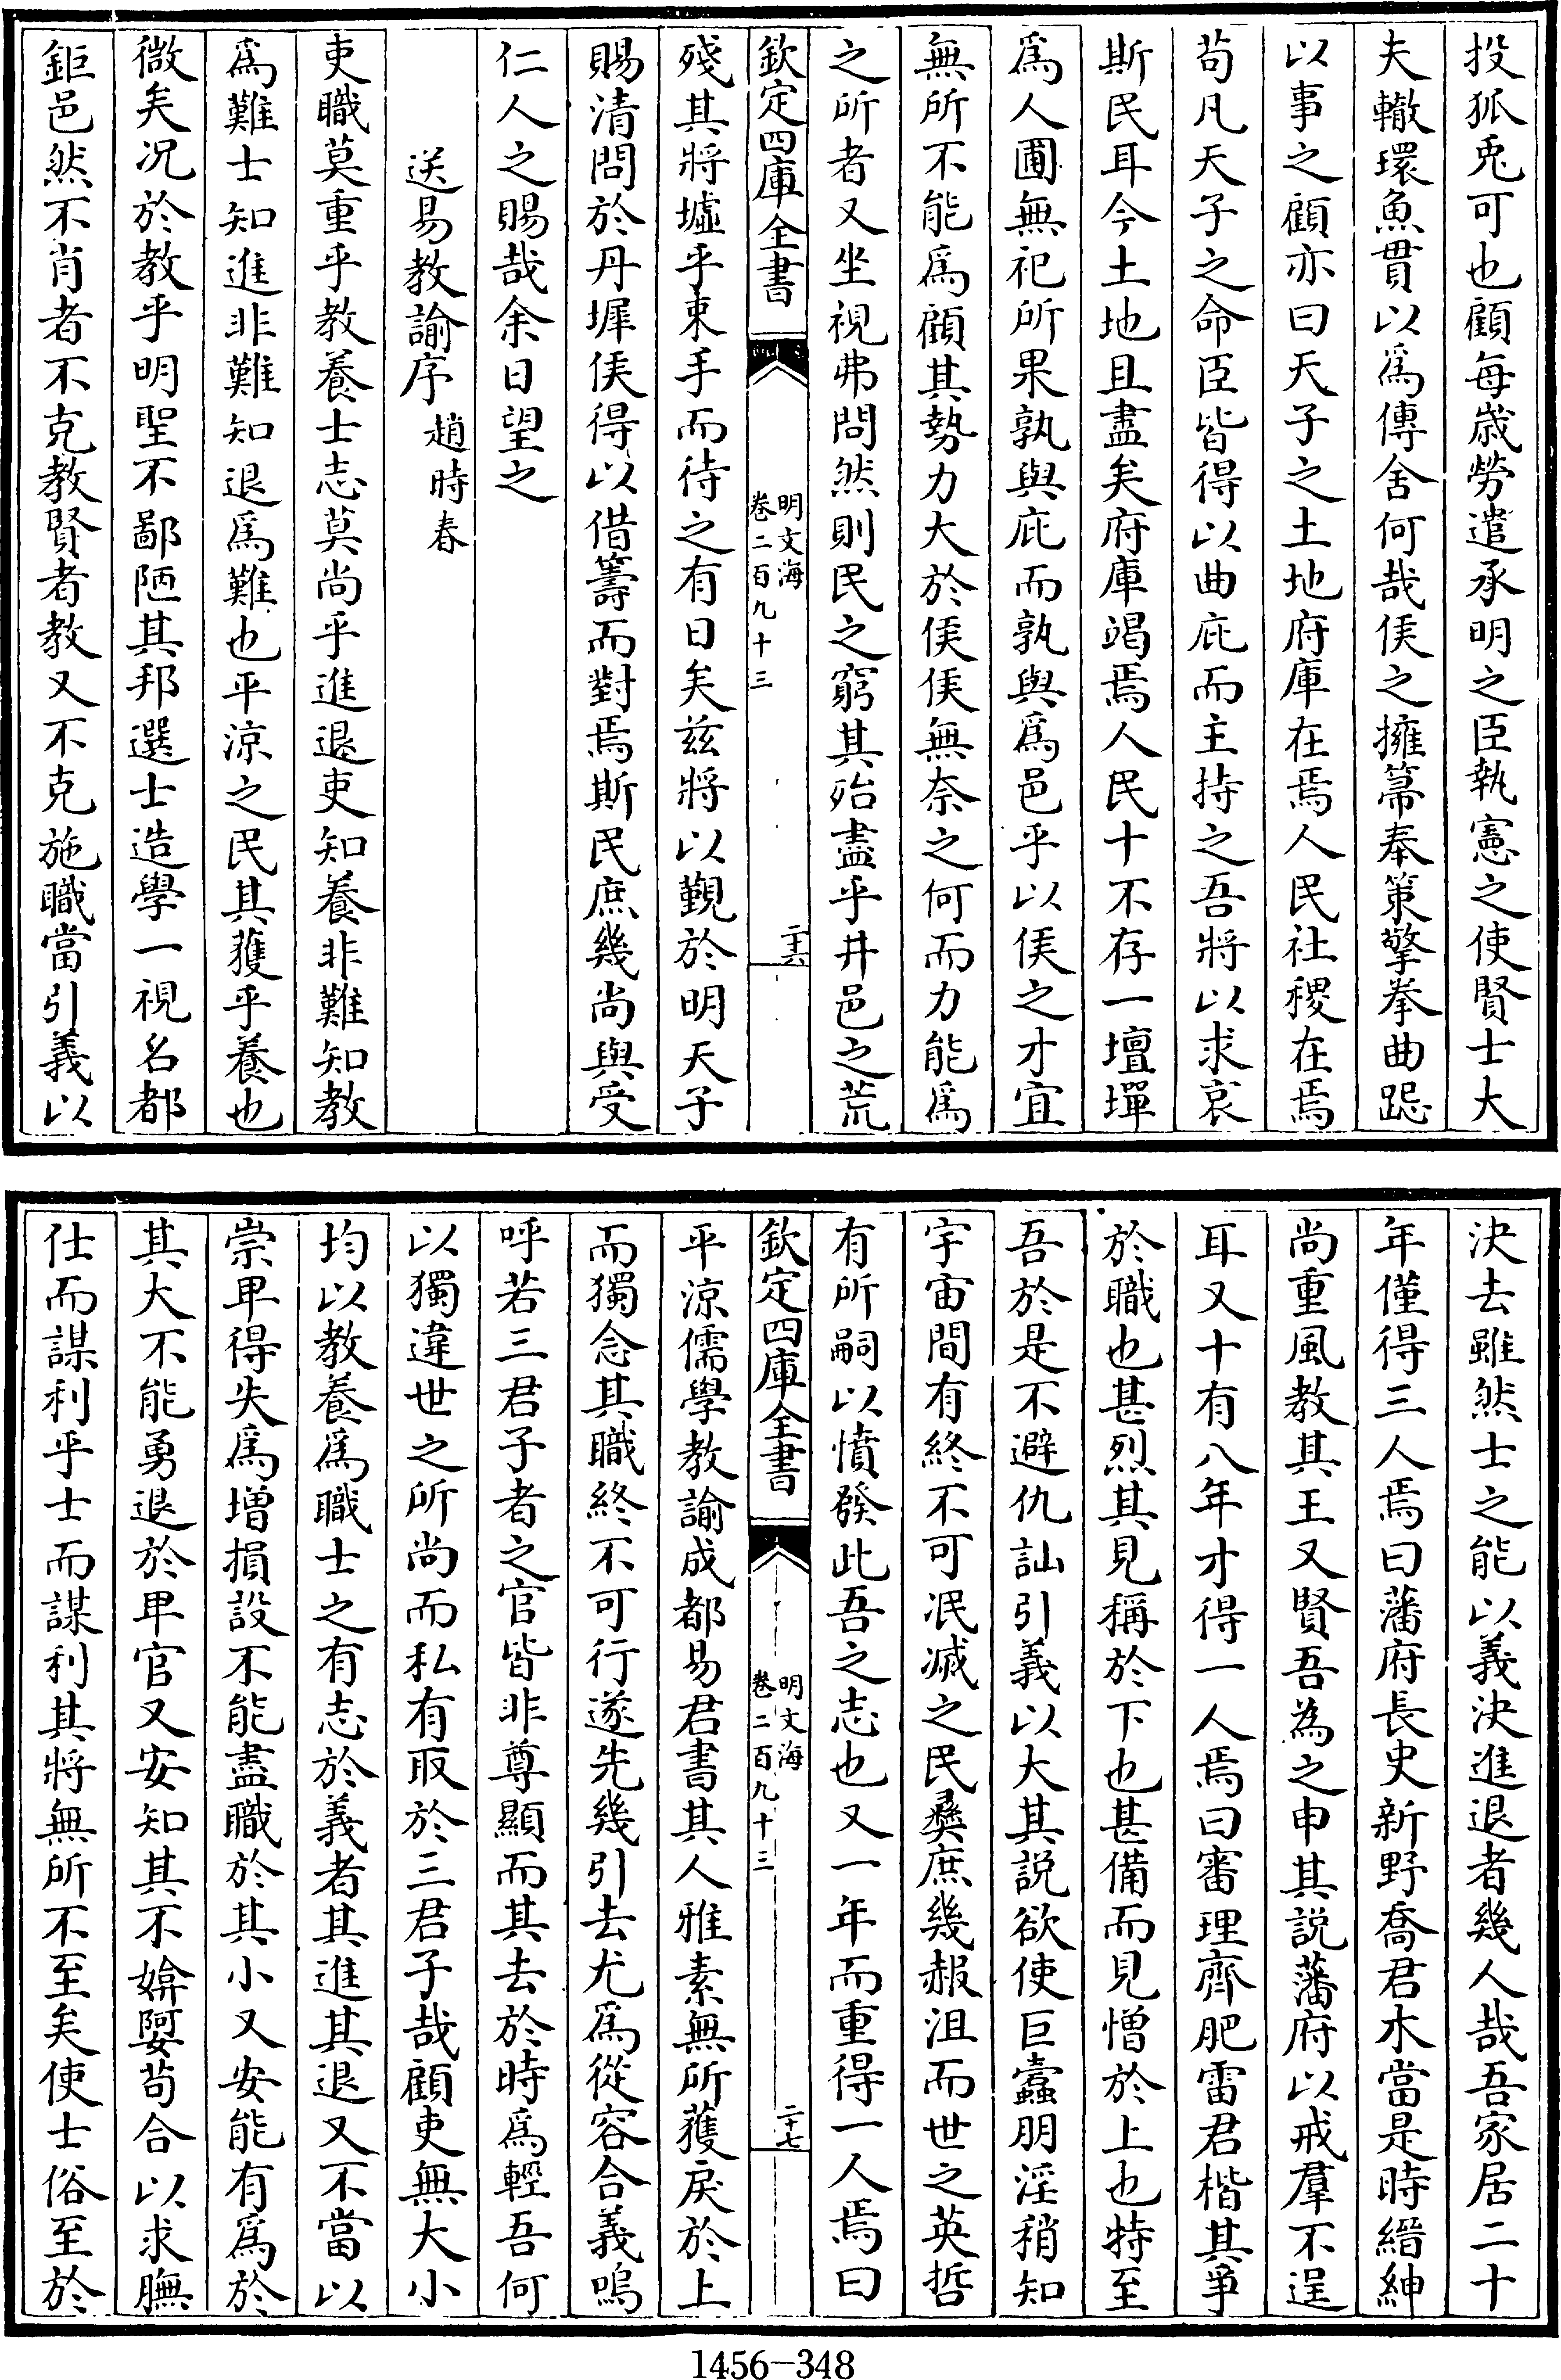 投狐兎可也顧每歳勞遣承明之臣執憲之使賢士大
夫轍環魚貫以爲傳舍何哉侯之擁篲奉策擎拳曲跽
以事之顧亦曰天子之土地府庫在焉人民社稷在焉
苟凡天子之命臣皆得以曲庇而主持之吾將以求哀
斯民耳今土地且盡矣府庫竭焉人民十不存一壇墠
爲人圃無祀所果孰與庇而孰與爲邑乎以侯之才宜
無所不能爲顧其勢力大於侯侯無奈之何而力能爲
之所者又坐視弗問然則民之窮其殆盡乎井邑之荒
欽定四庫全書
明文海
卷二百九十三
二十六
殘其將墟乎束手而待之有日矣兹將以覲於明天子
賜清問於丹墀侯得以借籌而對焉斯民庶幾尚與受
仁人之賜哉余日望之
送易教諭序 趙時春
吏職莫重乎教養士志莫尚乎進退吏知養非難知教
爲難士知進非難知退爲難也平涼之民其獲乎養也
微矣况於教乎明聖不鄙陋其邦選士造學一視名都
鉅邑然不肖者不克教賢者教又不克施職當引義以
決去雖然士之能以義決進退者幾人哉吾家居二十
年僅得三人焉曰藩府長史新野喬君木當是時縉紳
尚重風教其王又賢吾為之申其説藩府以戒羣不逞
耳又十有八年才得一人焉曰審理齊肥雷君楷其爭
於職也甚烈其見稱於下也甚備而見憎於上也特至
吾於是不避仇訕引義以大其説欲使巨蠹朋淫稍知
宇宙間有終不可泯滅之民彜庶幾赧沮而世之英哲
有所嗣以憤發此吾之志也又一年而重得一人焉曰
欽定四庫全書
明文海
卷二百九十三
二十七
平涼儒學教諭成都易君書其人雅素無所獲戾於上
而獨念其職終不可行遂先幾引去尤爲從容合義嗚
呼若三君子者之官皆非尊顯而其去於時爲輕吾何
以獨違世之所尚而私有取於三君子哉顧吏無大小
均以教養爲職士之有志於義者其進其退又不當以
崇卑得失爲增損設不能盡職於其小又安能有爲於
其大不能勇退於卑官又安知其不媕婀苟合以求膴
仕而謀利乎士而謀利其將無所不至矣使士俗至於
1456-348